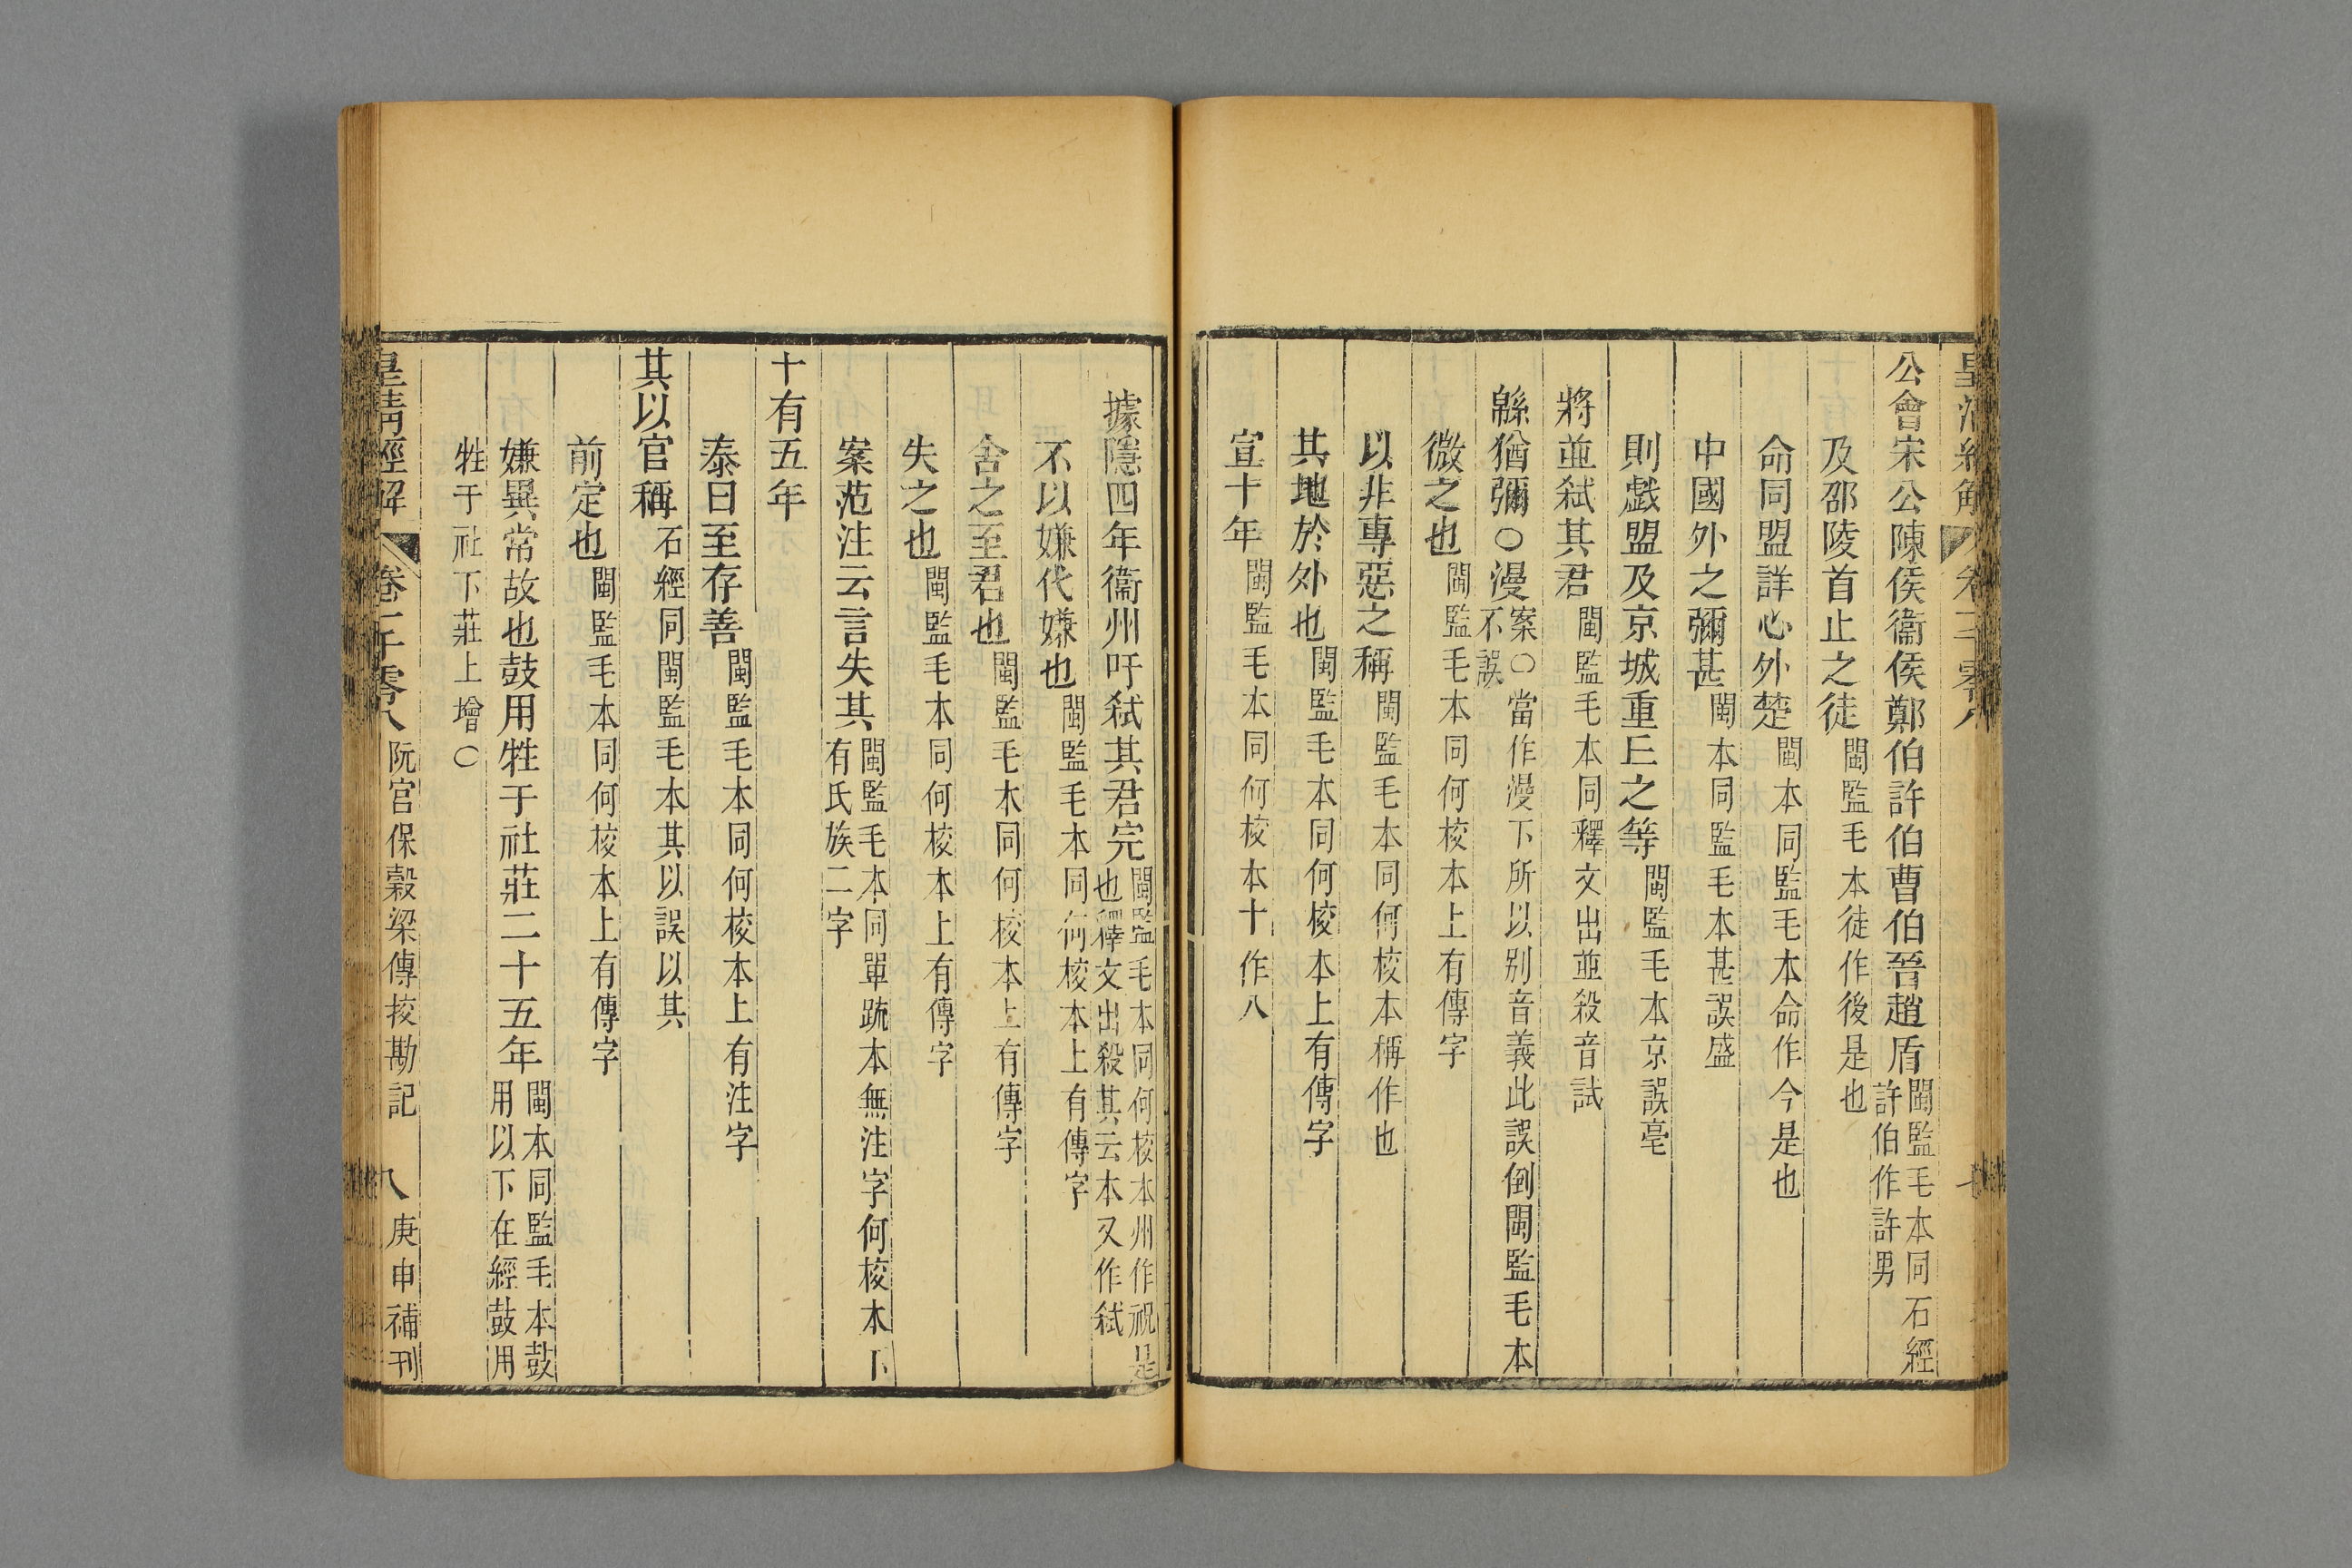 公會宋公陳侯衞侯鄭伯許伯曹伯晉趙盾閩監毛本同石經許伯作許男
及邵陵首止之徒閩監毛本徒作後是也
命同盟詳心外楚閩本同監毛本命作今是也
中國外之彌甚閩本同監毛本甚誤盛
則戲盟及京城重丘之等閩監毛本京誤亳
將並弒其君閩監毛本同釋文出並殺音試
緜猶彌○漫案○當作漫下所以别音義此誤倒閩監毛本不誤
微之也閩監毛本同何校本上有傳字
以非專惡之稱閩監毛本同何校本稱作也
其地於外也閩監毛本同何校本上有傳字
宣十年閩監毛本同何校本十作八
據隱四年衞州吁弒其君完閩監毛本同何校本州作祝是也釋文出殺其云本又作弒
不以嫌代嫌也閩監毛本同何校本上有傳字
舍之至君也閩監毛本同何校本上有傳字
失之也閩監毛本同何校本上有傳字
案范注云言失其閩監毛本同單疏本無注字何校本下有氏族二字
十有五年
泰曰至存善閩監毛本同何校本上有注字
其以官稱石經同閩監毛本其以誤以其
前定也閩監毛本同何校本上有傳字
嫌異常故也鼓用牲于社莊二十五年閩本同監毛本鼓用以下在經鼓用
牲于社下莊上增○
皇清經解 卷一千零八 阮宮保穀梁傳挍勘記 八 庚申補刊